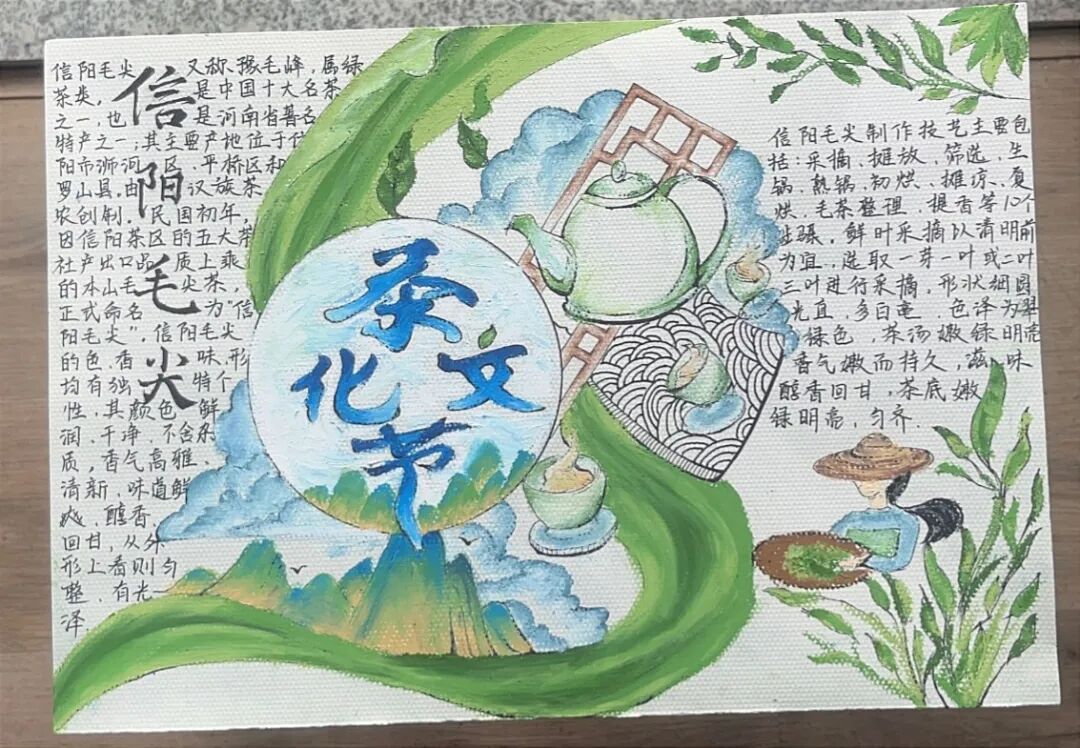 信阳毛尖
信阳毛尖 又称豫毛峰，属绿
茶类， 是中国十大名茶
之一，也 是河南省著名
特产之一；其主要产地位于信
阳市浉河 区、平桥区和
罗山县，由 汉族茶
农创制。民国初年，
因信阳茶区的五大茶
社产出口品 质上乘
的本山毛 尖茶，
正式命名 为“信
阳毛尖”，信阳毛尖
的色、香 味、形
均有独 特个
性，其颜色 鲜
润、干净、不含杂
质，香气高雅、
清新，味道鲜
爽、醇香、
回甘，从外
形上看则匀
整、有光
泽
茶
化文
节
信阳毛尖制作技艺主要包
括：采摘、摊放、筛选、生
锅、熟锅、初烘、摊凉、复
烘、毛茶整理、提香等10个
步骤，鲜叶采摘以清明前
为宜，选取一芽一叶或二叶
三叶进行采摘，形状细圆
光直，多白毫，色泽为翠
绿色，茶汤嫩绿明亮
香气嫩而持久，滋味
醇香回甘，茶底嫩
绿明亮，匀齐．